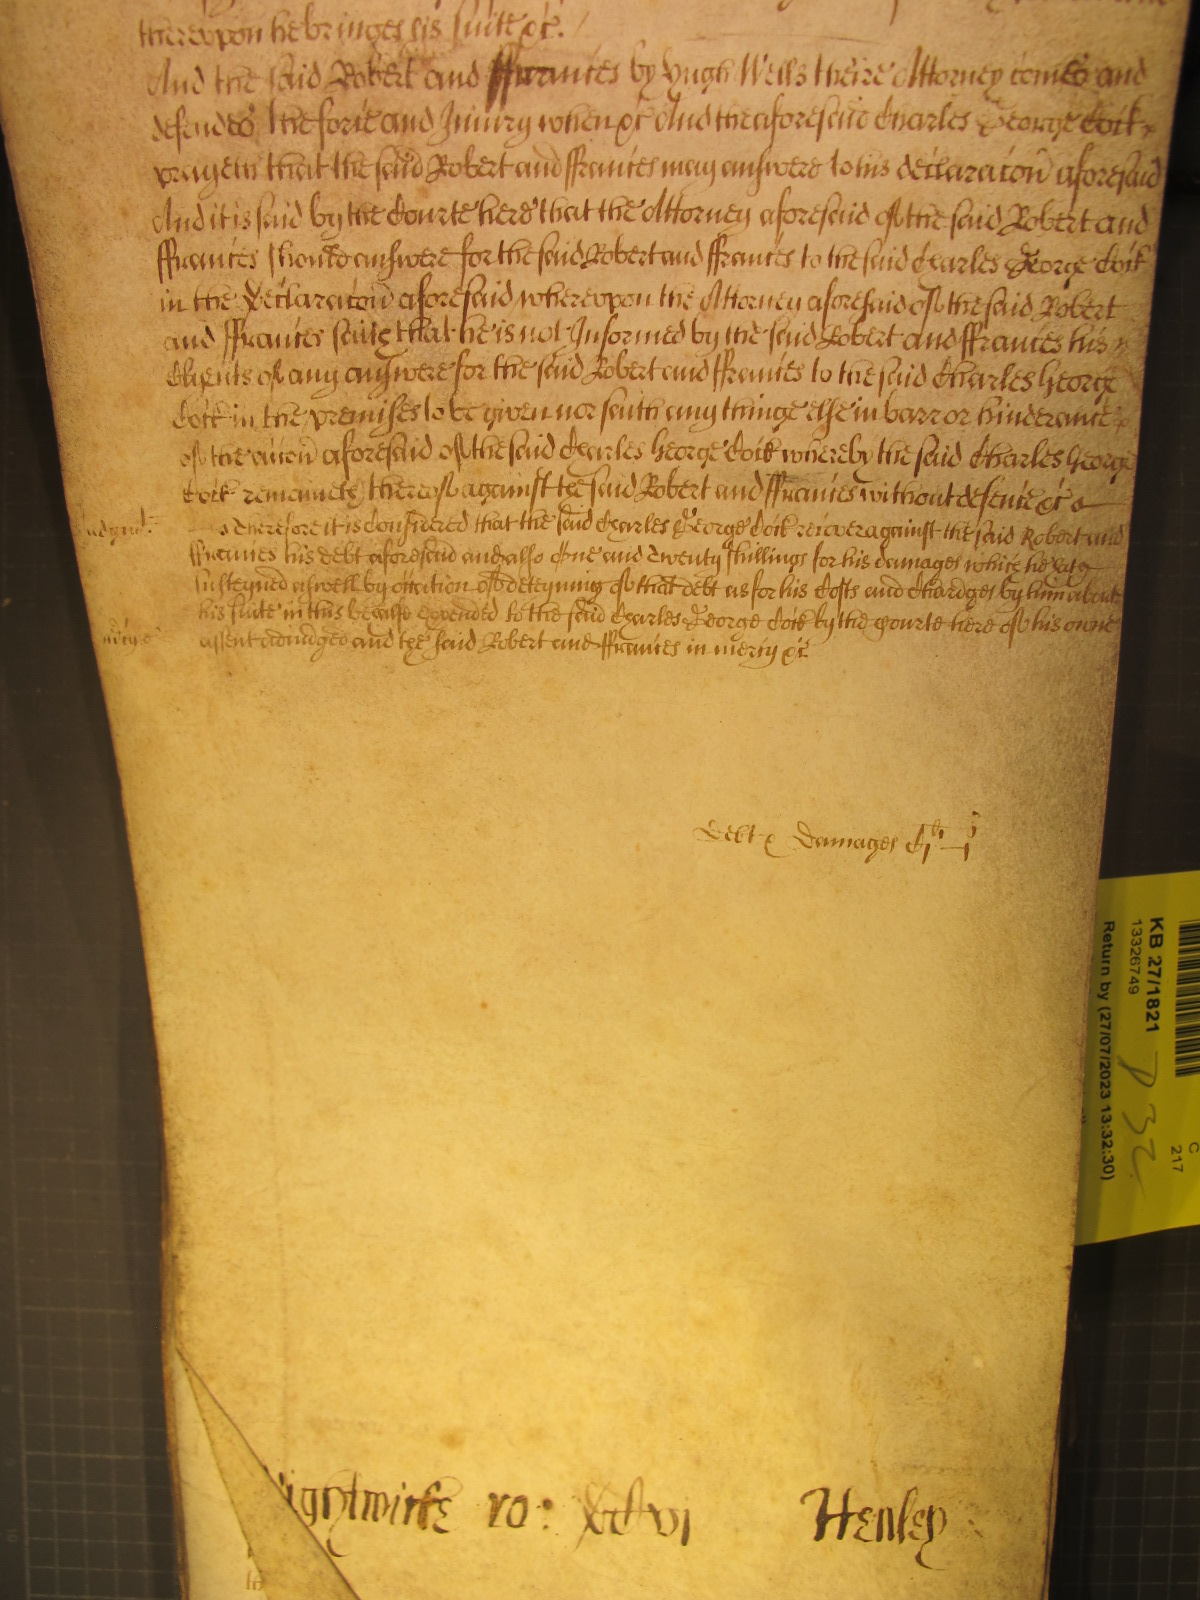 thereupon he bringes his suite &c.
And the said Robert and ffrances by Hugh Wells theire Attorney comes and
defendes the force and Iniury when &c And the aforesaid Charles George Cock
prayeth that the said Robert and ffrances may answere to his declaracon aforesaid
And it is said by the Courte here that the Attorney aforesaid of the said Robert and
ffrances should answere for the said Robert and ffrances to the said Charles George Cock
in the Declaracon aforesaid whereupon the Attorney aforesaid of the said Robert
and ffrances saith that he is not Informed by the said Robert and ffrances his
Clyents of any answere for the said Robert and ffrances to the said Charles George
Cock in the premises to be given nor saith any thinge else in barr or hinderance
of the accon aforesaid of the said Charles George Cock whereby the said Charles George
Cock remaineth thereof against the said Robert and ffrances without defence &c
Iudgmt. Therefore it is considered that the said Charles George Cock recover against the said Robert and
ffrances his debt aforesaid and also One and Twenty shillings for his damages which he
susteyned aswell by occation of deteyning of that debt as for his Costs and Chardges by him about
his suite in this behalfe expended to the said Charles George Cock by the Courte here of his owne
assent adiudged and the said Robert and ffrances in mercy &c.
Debt & Damages
ightwicke ro: xcvi Henley
KB 27/1821
13326749
Return by (27/07/2023 13:32:30)
C
217